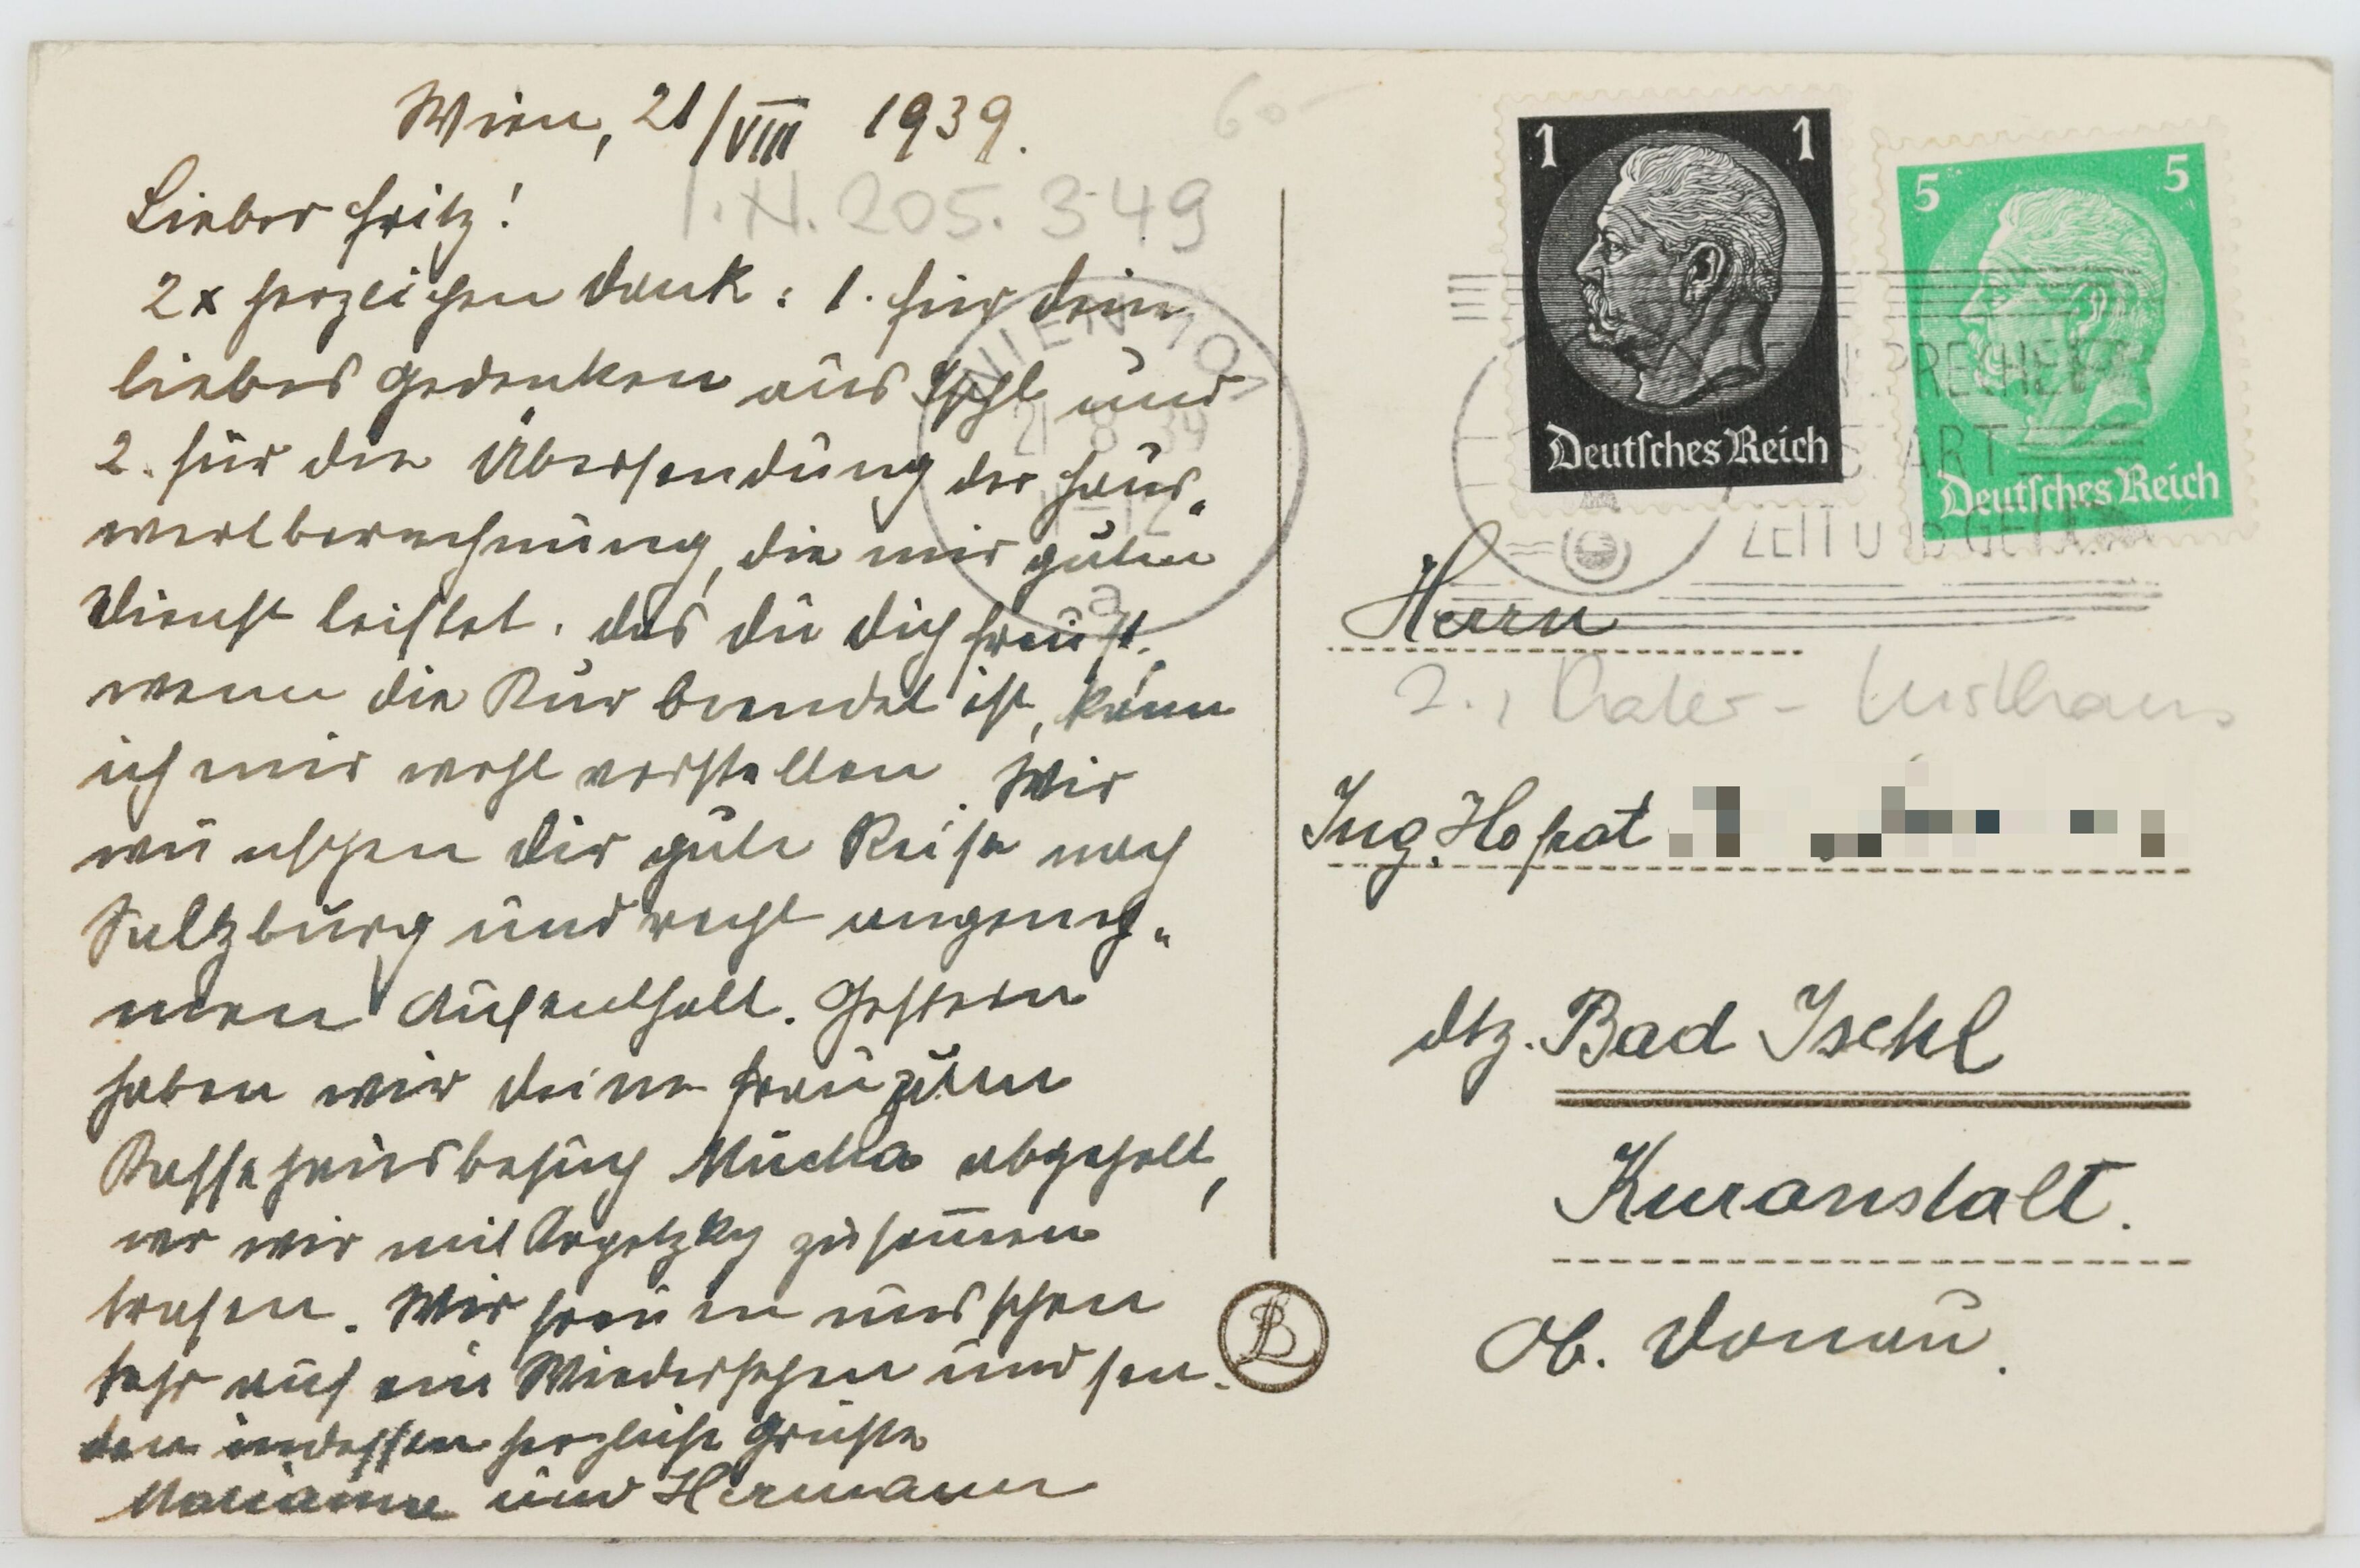 Wien, 21/VIII 1939.
60 –
I.N. 205.349
Lieber Fritz!
2x herzlichen Dank: 1. für Dein
liebes Gedenken aus Ischl und
2. für die Übersendung der Haus„
wertberechnung, die mir guten
Dienst leistet. Das Du Dich freust,
wenn die Kur beendet ist, kann
ich mir wohl vorstellen. Wir
wünschen Dir gute Reise nach
Salzburg und recht angeneh„
men Aufenthalt. Gestern
haben wir Deine Frau zum
Kaffeehausbesuch Mucha abgeholt,
wo wir mit zusam̅en
trafen. Wir freuen uns schon
sehr auf ein Wiedersehen und sen-
den indessen herzliche Grüße
Marianne und Hermann
WIEN 101
21 8 39
11-12
a
1 1
Deutsches Reich
5 5
Deutsches Reich
ZEIT UND GELD
Herrn
2., Prater - Lusthaus
Ing. Hofrat
dtz. Bad Ischl
Kuranstalt.
Ob. Donau.